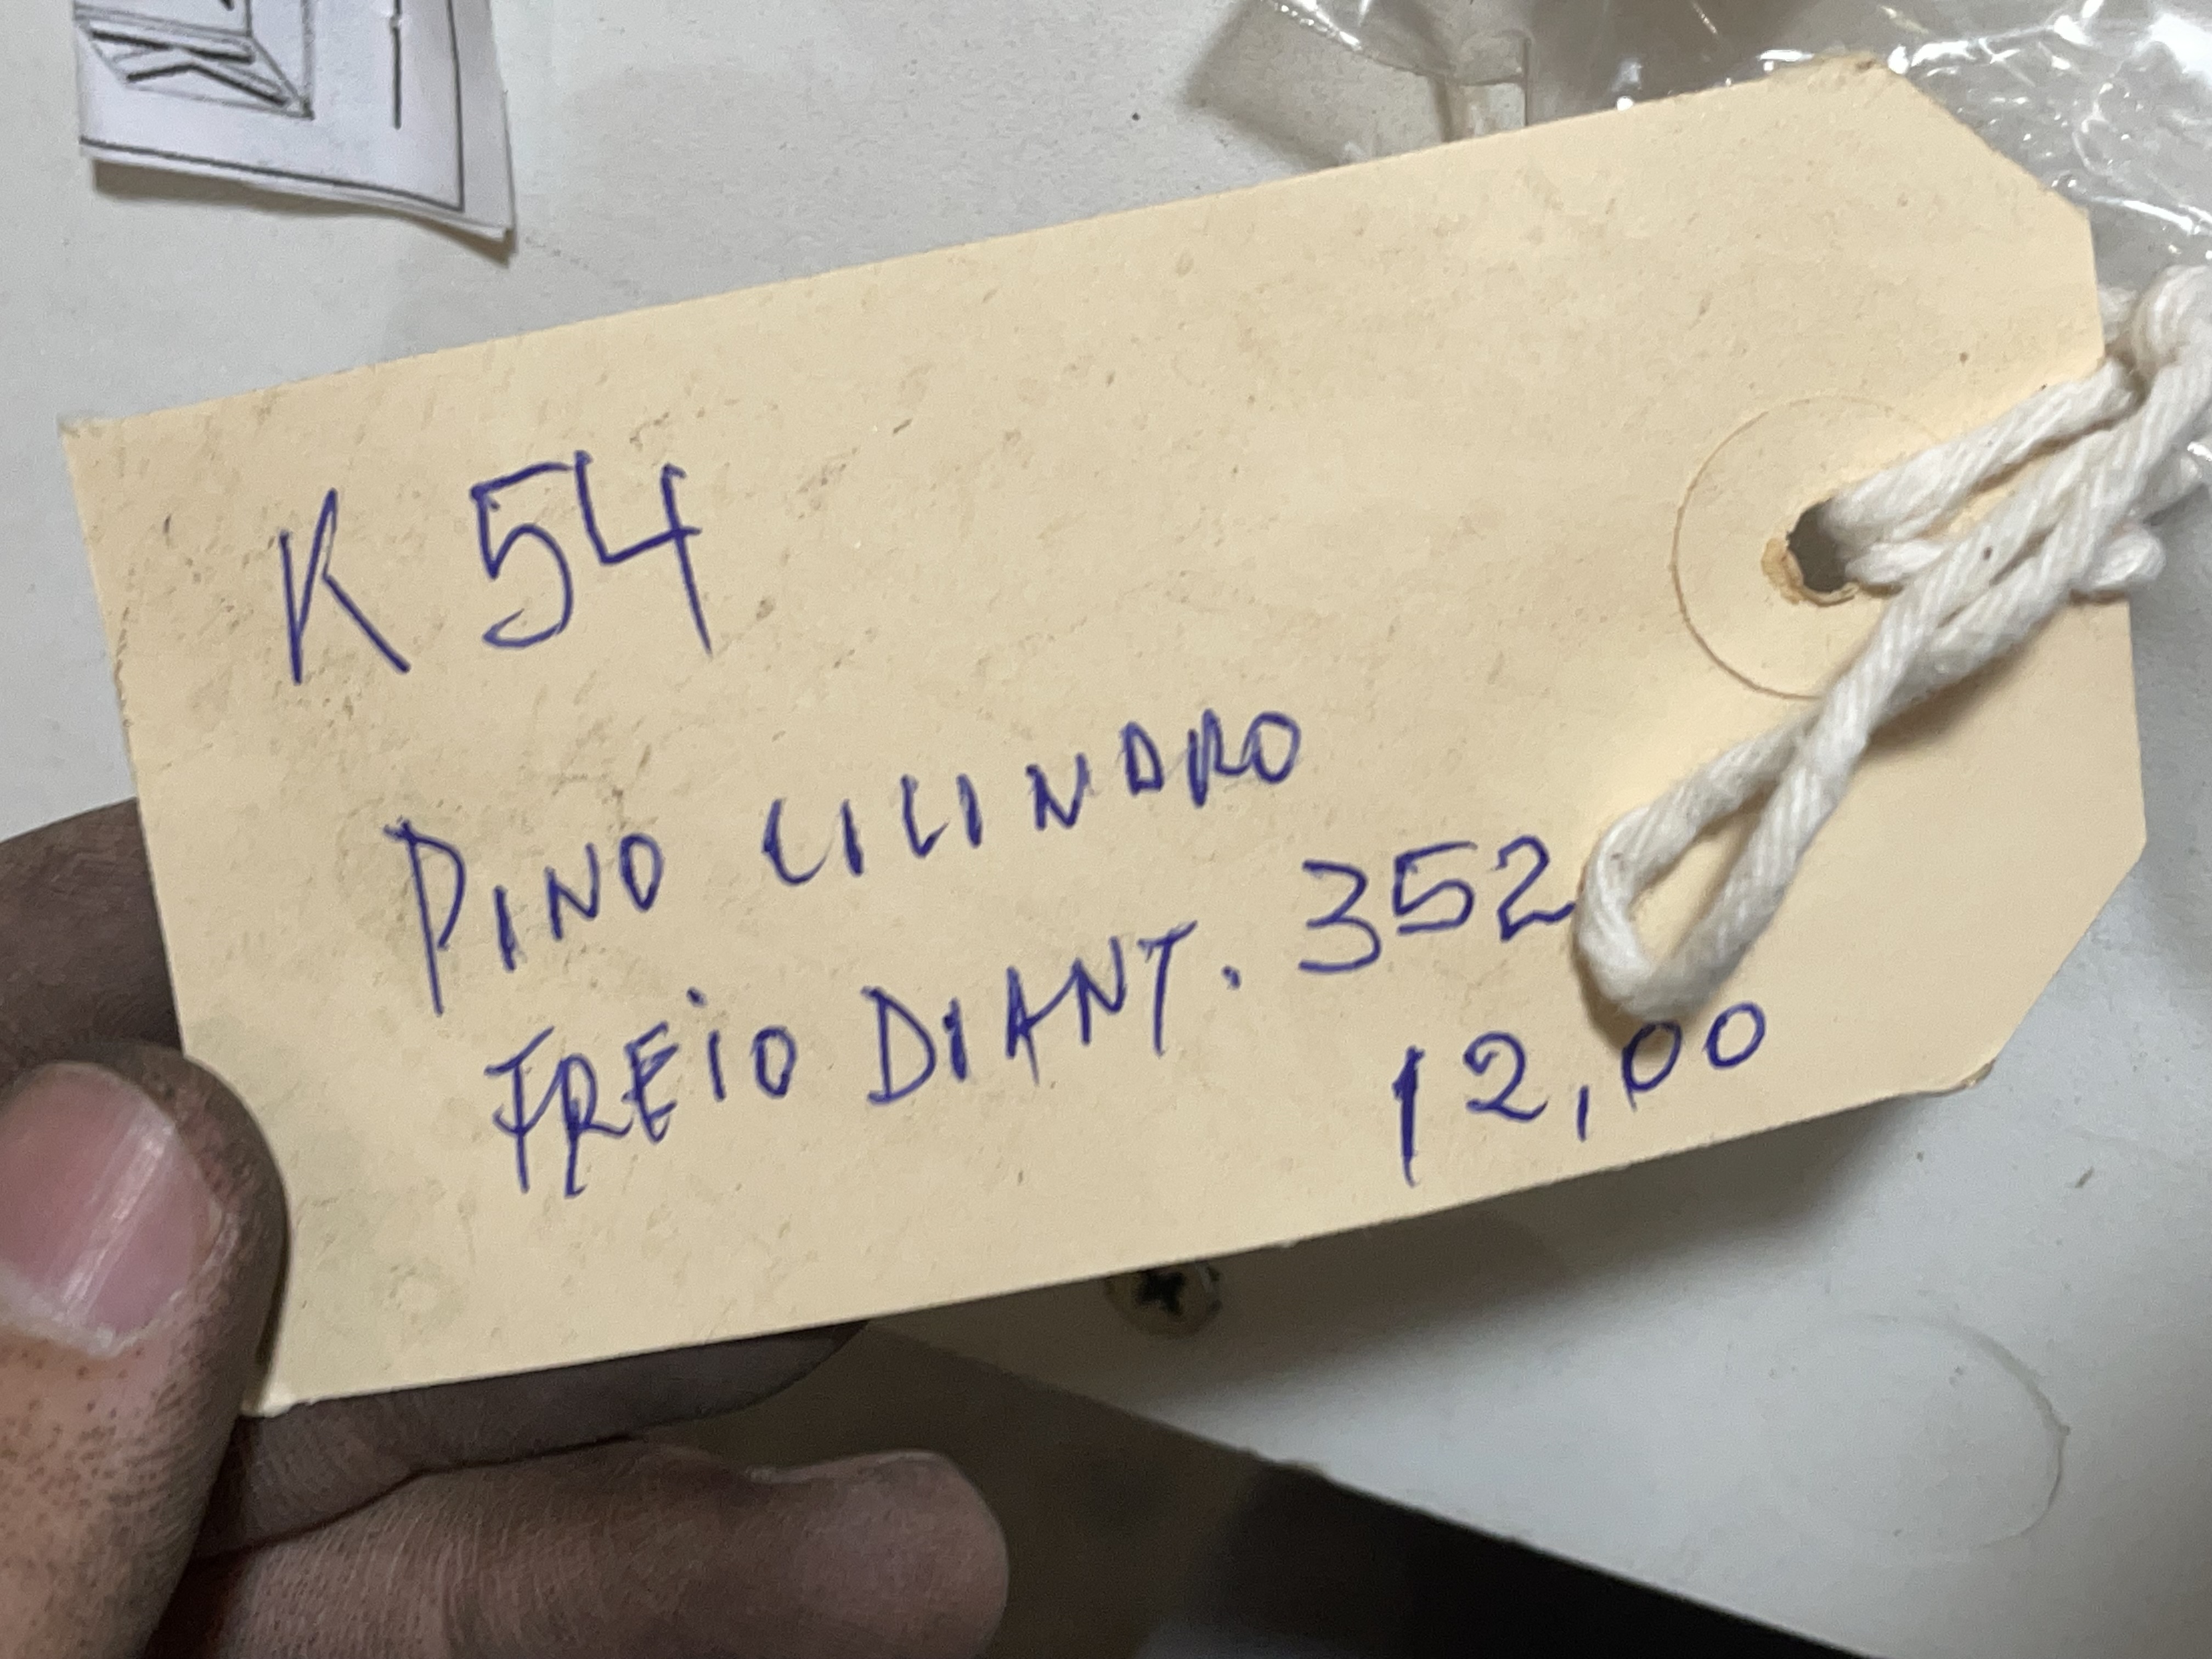 K 54
PINO CILINDRO
FREIO DIANT. 352
12,00